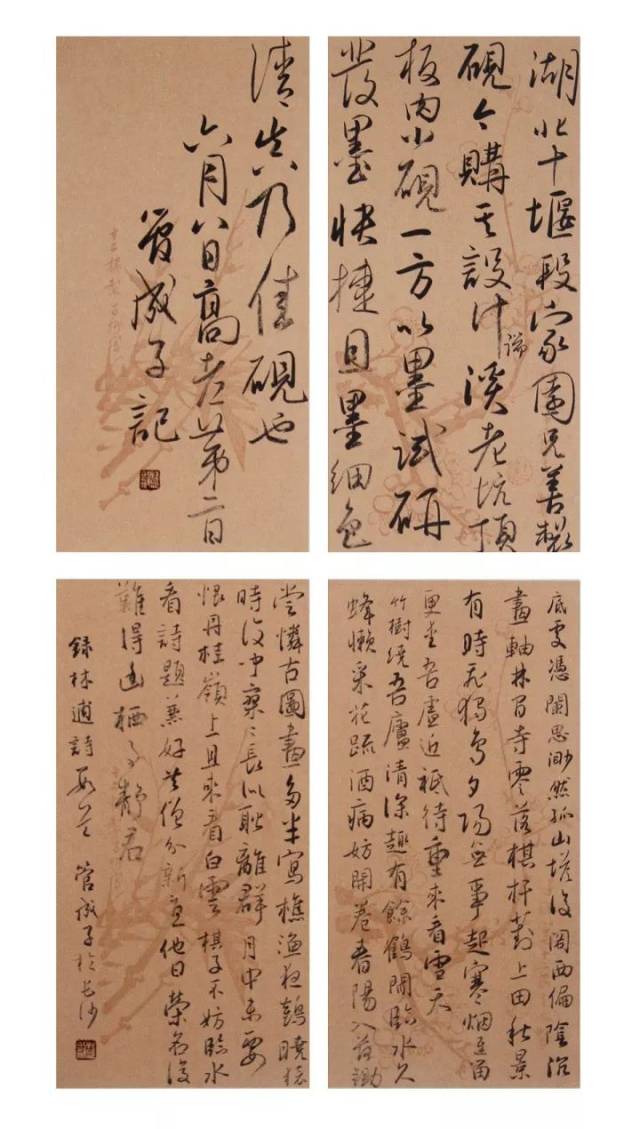 湖北十堰段家園兄善製
硯今購其設計端溪老坑頂
板肉小硯一方以墨試研
發墨快捷且墨細色
清真乃佳硯也
六月八日高考第二日
管成子記
底處憑闌思渺然孤山塔後閣西偏陰沉
畫軸林間寺零落棋枰葑上田秋景
有時飛獨鳥夕陽無事起寒烟遲留
更愛吾廬近祗待重來看雪天
竹樹繞吾廬清深趣有餘鶴閑臨水久
蜂懶采花疏酒病妨開卷春陽入荷鋤
嘗憐古圖畫多半寫樵漁夜鶴曉猿
時復聞寥寥長似耻離群月中未要
恨丹桂嶺上且來看白雲棋子不妨臨水
看詩題兼好共僧分新憂他日榮名後
難得幽栖事靜君
錄林逋詩數首 管成子於長沙